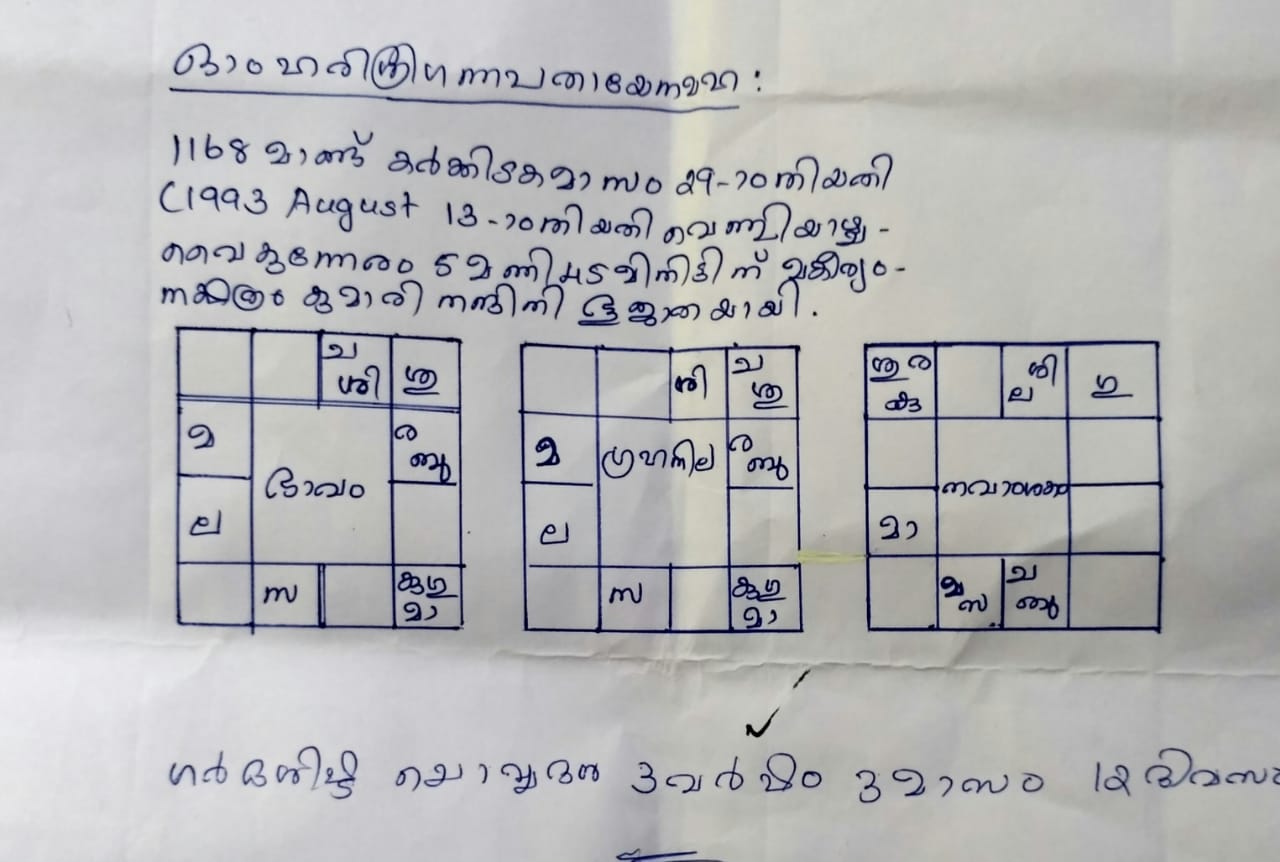 ഓം ഹരിശ്രീഗണപതായേനമഹ:
1168 മാണ്ട് കർക്കിടകമാസം 29-ാം തിയതി
(1993 August 13-ാം തിയതി വെള്ളിയാഴ്ച -
വൈകുന്നേരം 5 മണി 45 മിനിട്ടിന് മകീര്യം -
നക്ഷത്രം കുമാരി നന്ദിനി ഭൂജാതയായി.
ച
ശി ശു
മ ര
ബു
ഭാവം
ല
സ കുഗു
മാ
ശി ച
ശു
മ ഗ്രഹനില ര
ബു
ല
സ കുഗു
മാ
ശു ര
കു ശി
ല ഗു
നവാംശകം
മാ
മ
സ ച
ബു
ഗർഭശിഷ്ട ചൊവ്വദശ 3 വർഷം 3 മാസം 12 ദിവസം